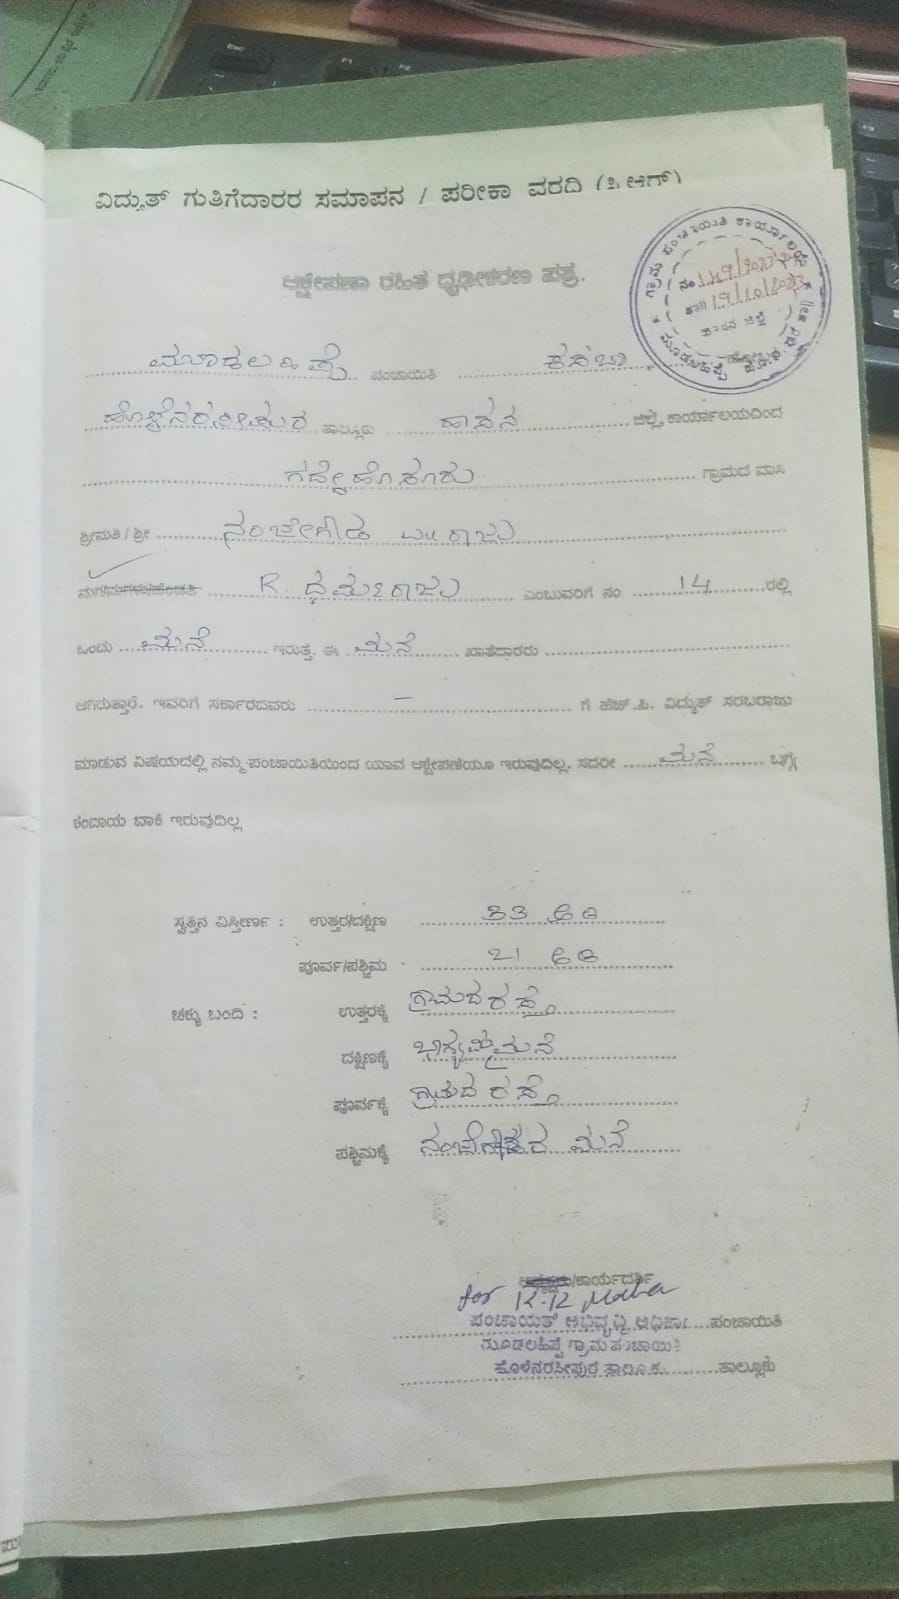 ವಿದ್ಯುತ್ ಗುತಿಗೆದಾರರ ಸಮಾಪನ / ಪರೀಕಾ ವರದಿ
ಆಕ್ಷೇಪಣಾ ರಹಿತ ಧೃಢೀಕರಣ ಪತ್ರ.
ಗ್ರಾಮ ಪಂಚಾಯಿತಿ ಕಾರ್ಯಾಲಯ
ಹಾಸನ ಜಿಲ್ಲೆ
ಮೂಡಲಹಿಪ್ಪೆ ಪಂಚಾಯಿತಿ ಕಸಬಾ
ಹೊಳೆನರಸೀಪುರ ತಾಲ್ಲೂಕು ಹಾಸನ ಜಿಲ್ಲೆ, ಕಾರ್ಯಾಲಯದಿಂದ
ಗದ್ದೆಹೊಸೂರು ಗ್ರಾಮದ ವಾಸಿ
ಶ್ರೀಮತಿ / ಶ್ರೀ ನಂಜೇಗೌಡ
ಮಗ/ಮಗಳು/ಹೆಂಡತಿ R. ಧರ್ಮರಾಜು ಎಂಬುವರಿಗೆ ನಂ 14 ರಲ್ಲಿ
ಒಂದು ಮನೆ ಇರುತ್ತೆ. ಈ ಮನೆ ಖಾತೆದಾರರು
ಆಗಿರುತ್ತಾರೆ. ಇವರಿಗೆ ಸರ್ಕಾರದವರು – ಗೆ ಹೆಚ್.ಪಿ. ವಿದ್ಯುತ್ ಸರಬರಾಜು
ಮಾಡುವ ವಿಷಯದಲ್ಲಿ ನಮ್ಮ ಪಂಚಾಯಿತಿಯಿಂದ ಯಾವ ಆಕ್ಷೇಪಣೆಯೂ ಇರುವುದಿಲ್ಲ. ಸದರೀ ಮನೆ ಬಗ್ಗೆ
ಕಂದಾಯ ಬಾಕಿ ಇರುವುದಿಲ್ಲ
ಸ್ವತ್ತಿನ ವಿಸ್ತೀರ್ಣ : ಉತ್ತರ/ದಕ್ಷಿಣ 33 ಅಡಿ
ಪೂರ್ವ/ಪಶ್ಚಿಮ 21 ಅಡಿ
ಚಕ್ಕು ಬಂದಿ : ಉತ್ತರಕ್ಕೆ ಗ್ರಾಮದ ರಸ್ತೆ
ದಕ್ಷಿಣಕ್ಕೆ ಭಾಗ್ಯಮ್ಮ ಮನೆ
ಪೂರ್ವಕ್ಕೆ ಗ್ರಾಮದ ರಸ್ತೆ
ಪಶ್ಚಿಮಕ್ಕೆ ನಂಜೇಗೌಡರ ಮನೆ
ಅಧ್ಯಕ್ಷರು/ಕಾರ್ಯದರ್ಶಿ
for
ಪಂಚಾಯತ್ ಅಭಿವೃದ್ಧಿ ಅಧಿಕಾ ಪಂಚಾಯಿತಿ
ಮೂಡಲಹಿಪ್ಪೆ ಗ್ರಾಮ ಪಂಚಾಯಿತಿ
ಹೊಳೆನರಸೀಪುರ ತಾಲೂಕು ತಾಲ್ಲೂಕು